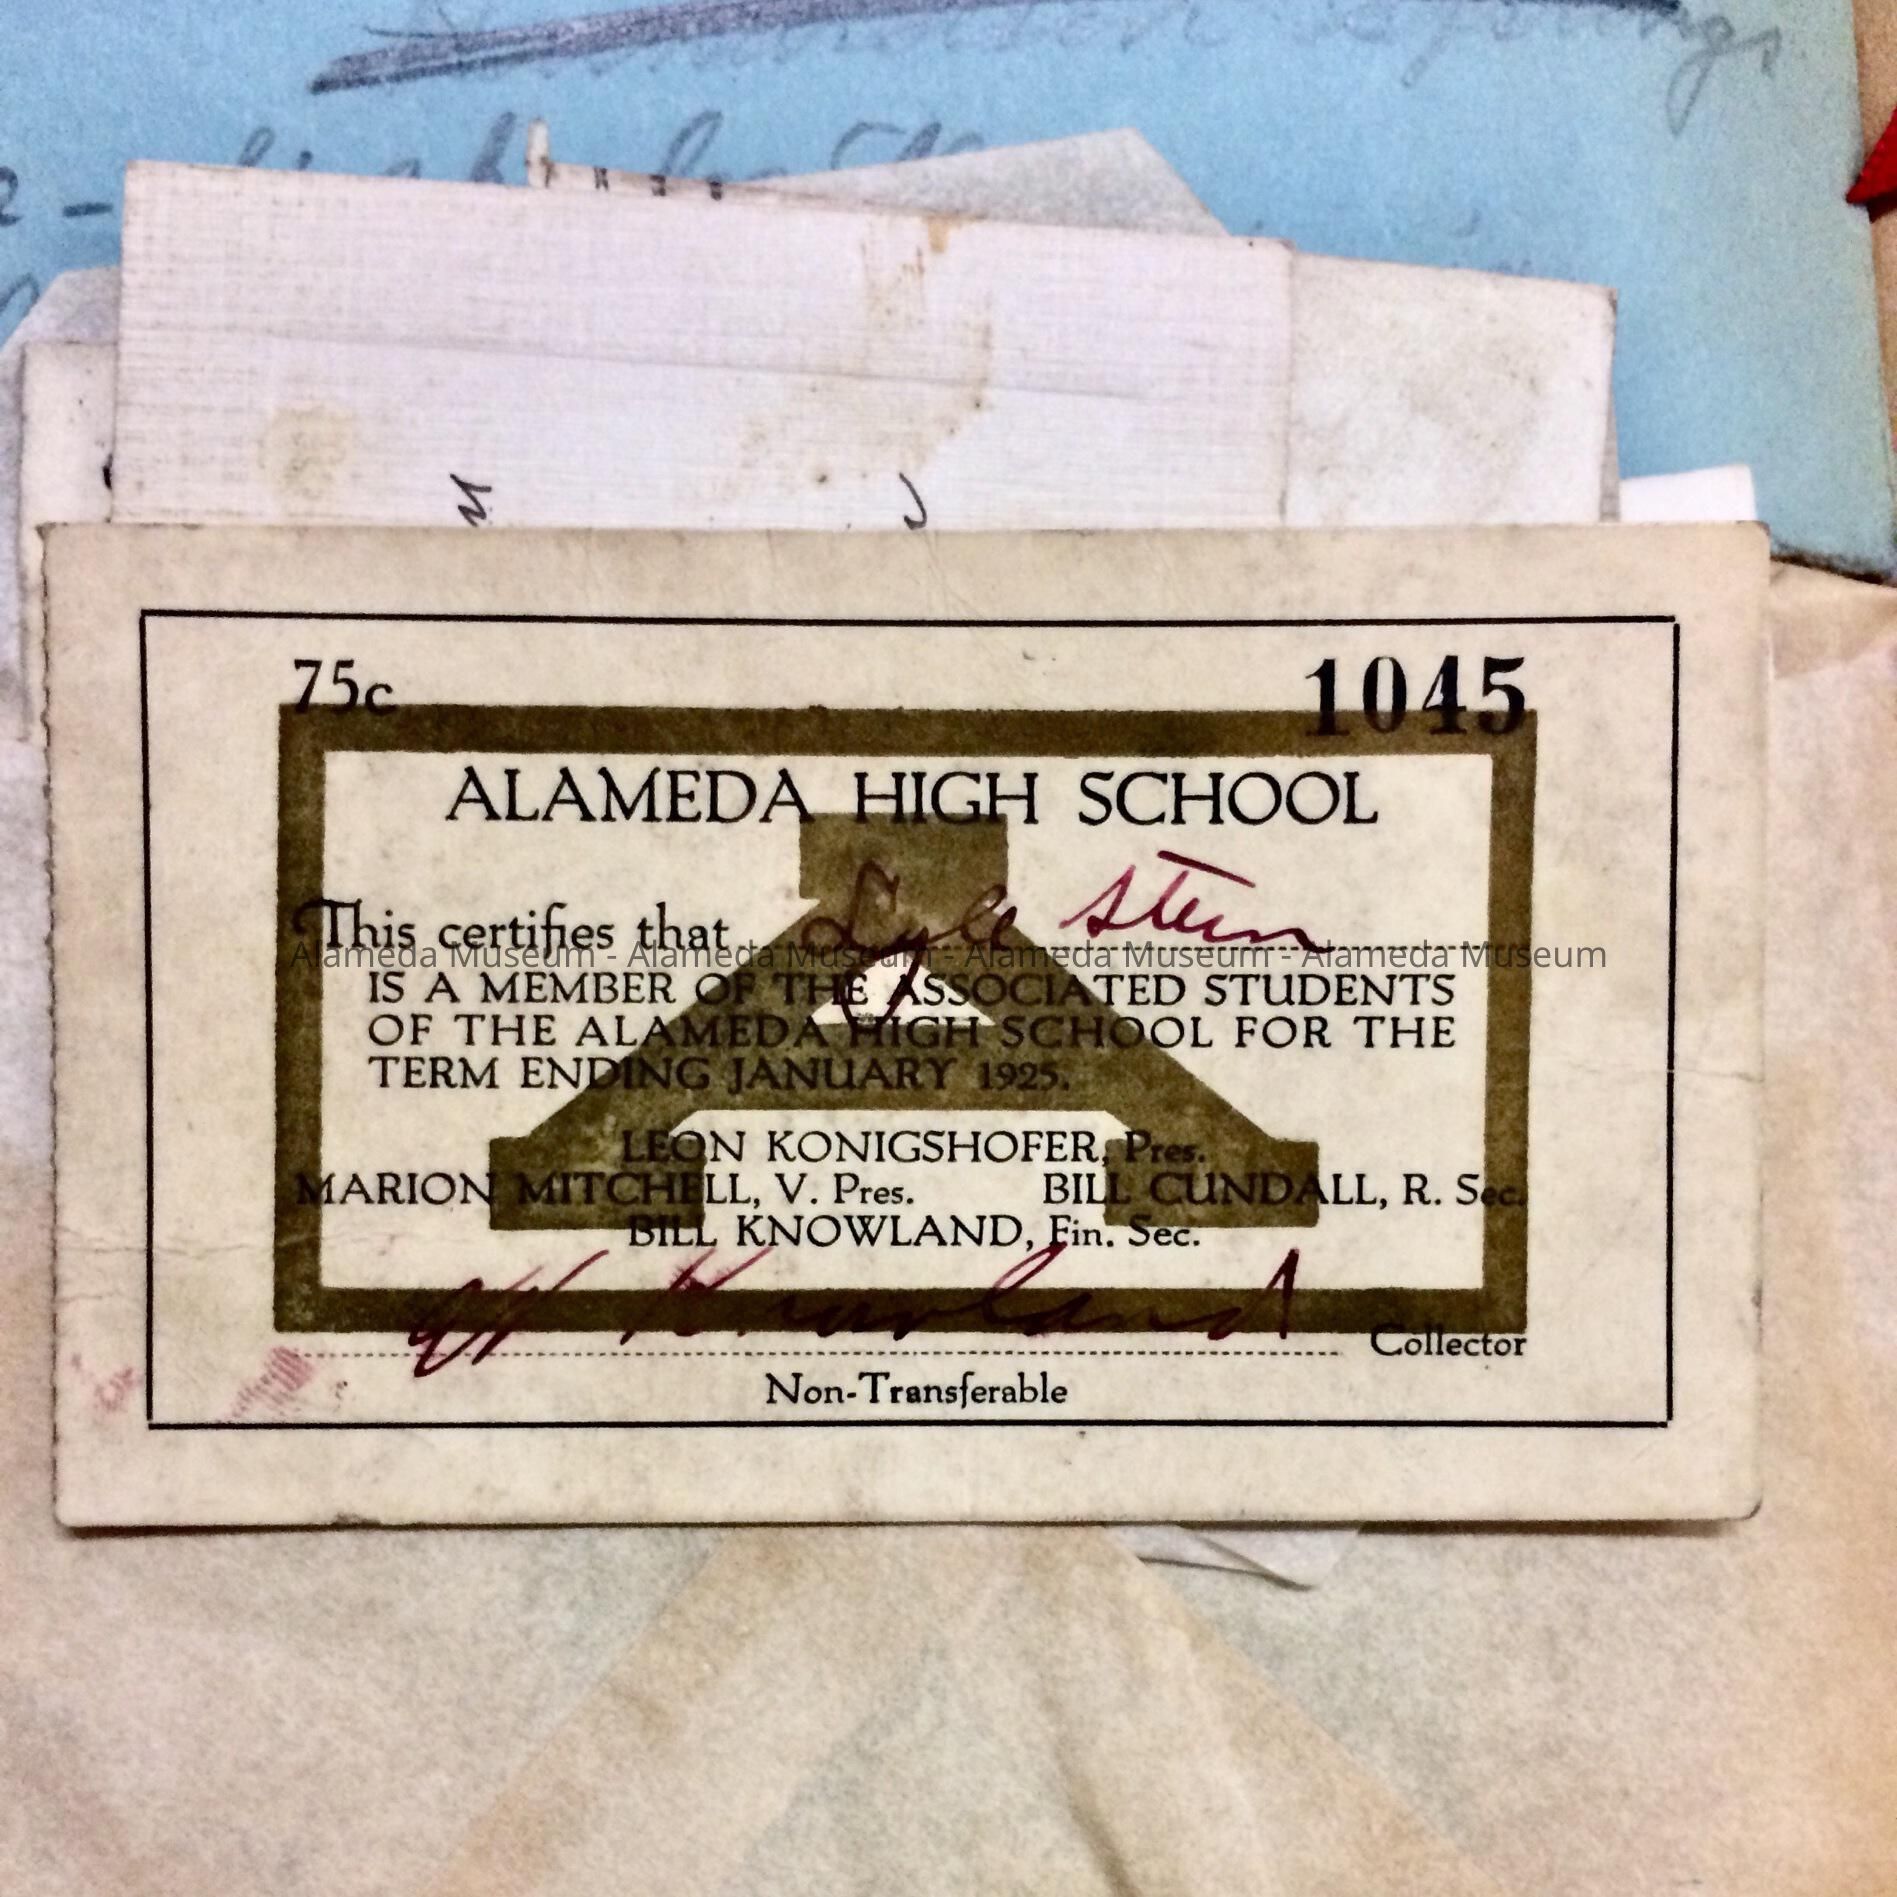 75c
1045
ALAMEDA HIGH SCHOOL
This certifies that Lyle Stein
Alameda Museum - Alameda Museum - Alameda Museum - Alameda Museum
IS A MEMBER OF THE ASSOCIATED STUDENTS
OF THE ALAMEDA HIGH SCHOOL FOR THE
TERM ENDING JANUARY 1925.
LEON KONIGSHOFER, Pres.
MARION MITCHELL, V. Pres. BILL CUNDALL, R. Sec.
BILL KNOWLAND, Fin. Sec.
W Knowland Collector
Non-Transferable